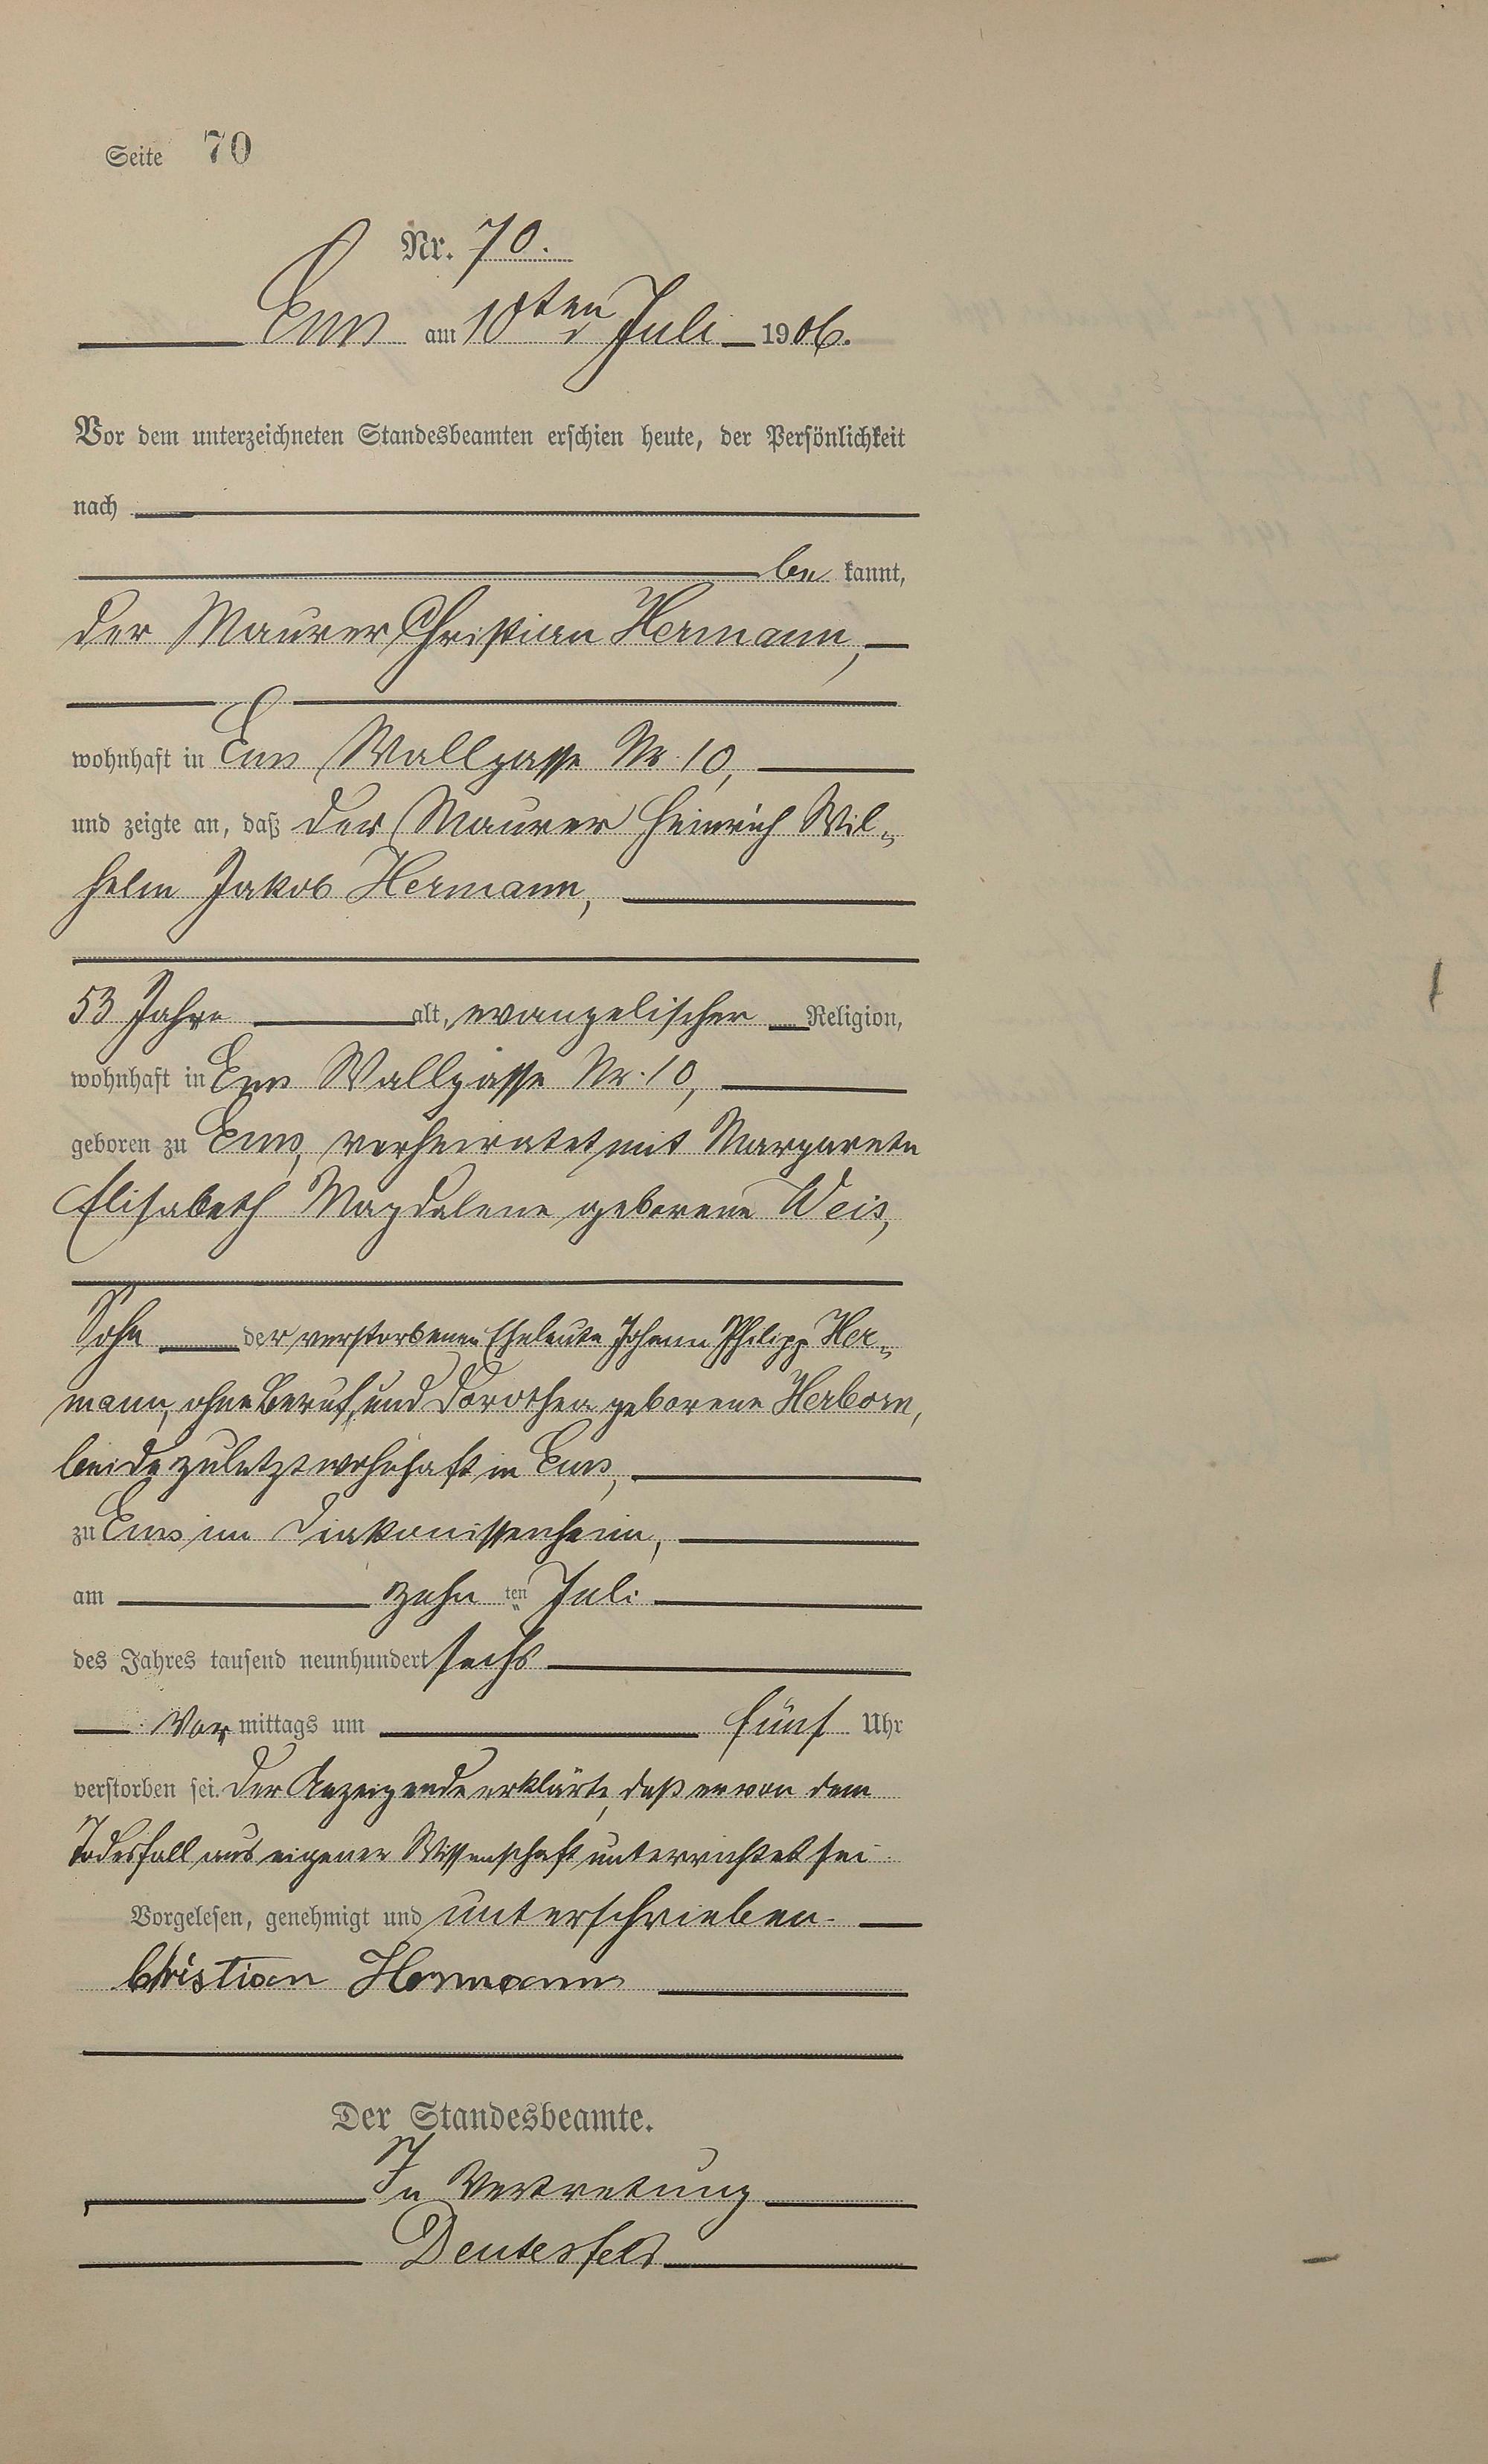 Seite 70
Nr. 70.
Ems am 10ten Juli 1906.
Vor dem unterzeichneten Standesbeamten erschien heute, der Persönlichkeit
nach
be kannt,
der Maurer Christian Hermann,
wohnhaft in Ems Wallgasse Nr. 10,
und zeigte an, daß der Maurer Heinrich Wil-
helm Jakob Hermann,
53 Jahre alt, evangelischer Religion,
wohnhaft in Ems Wallgasse Nr. 10,
geboren zu Ems, verheiratet mit Margarete
Elisabeth Magdalene geborene Weis,
Sohn der verstorbenen Eheleute Johann Philipp Her-
mann, ohne Beruf, und Dorothea geborene Herborn,
beide zuletzt wohnhaft in Ems,
zu Ems im Diakonissenheim,
am zehn ten Juli
des Jahres tausend neunhundert sechs
Vor mittags um fünf Uhr
verstorben sei. Der Anzeigende erklärte, daß er von dem
Todesfall aus eigener Wissenschaft unterrichtet sei.
Vorgelesen, genehmigt und unterschrieben.
Christian Hermann
Der Standesbeamte.
In Vertretung
Deutesfeld